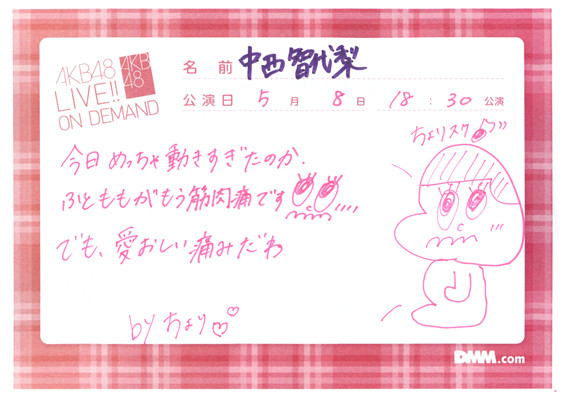 AKB48
LIVE!!
ON DEMAND
AKB
48
名前 中西智代梨
公演日 5月 8日 18:30 公演
ちょりスケ
今日めっちゃ動きすぎたのか、
ふとももがもう筋肉痛です
でも、愛おしい痛みだわ
by ちょり
DMM.com